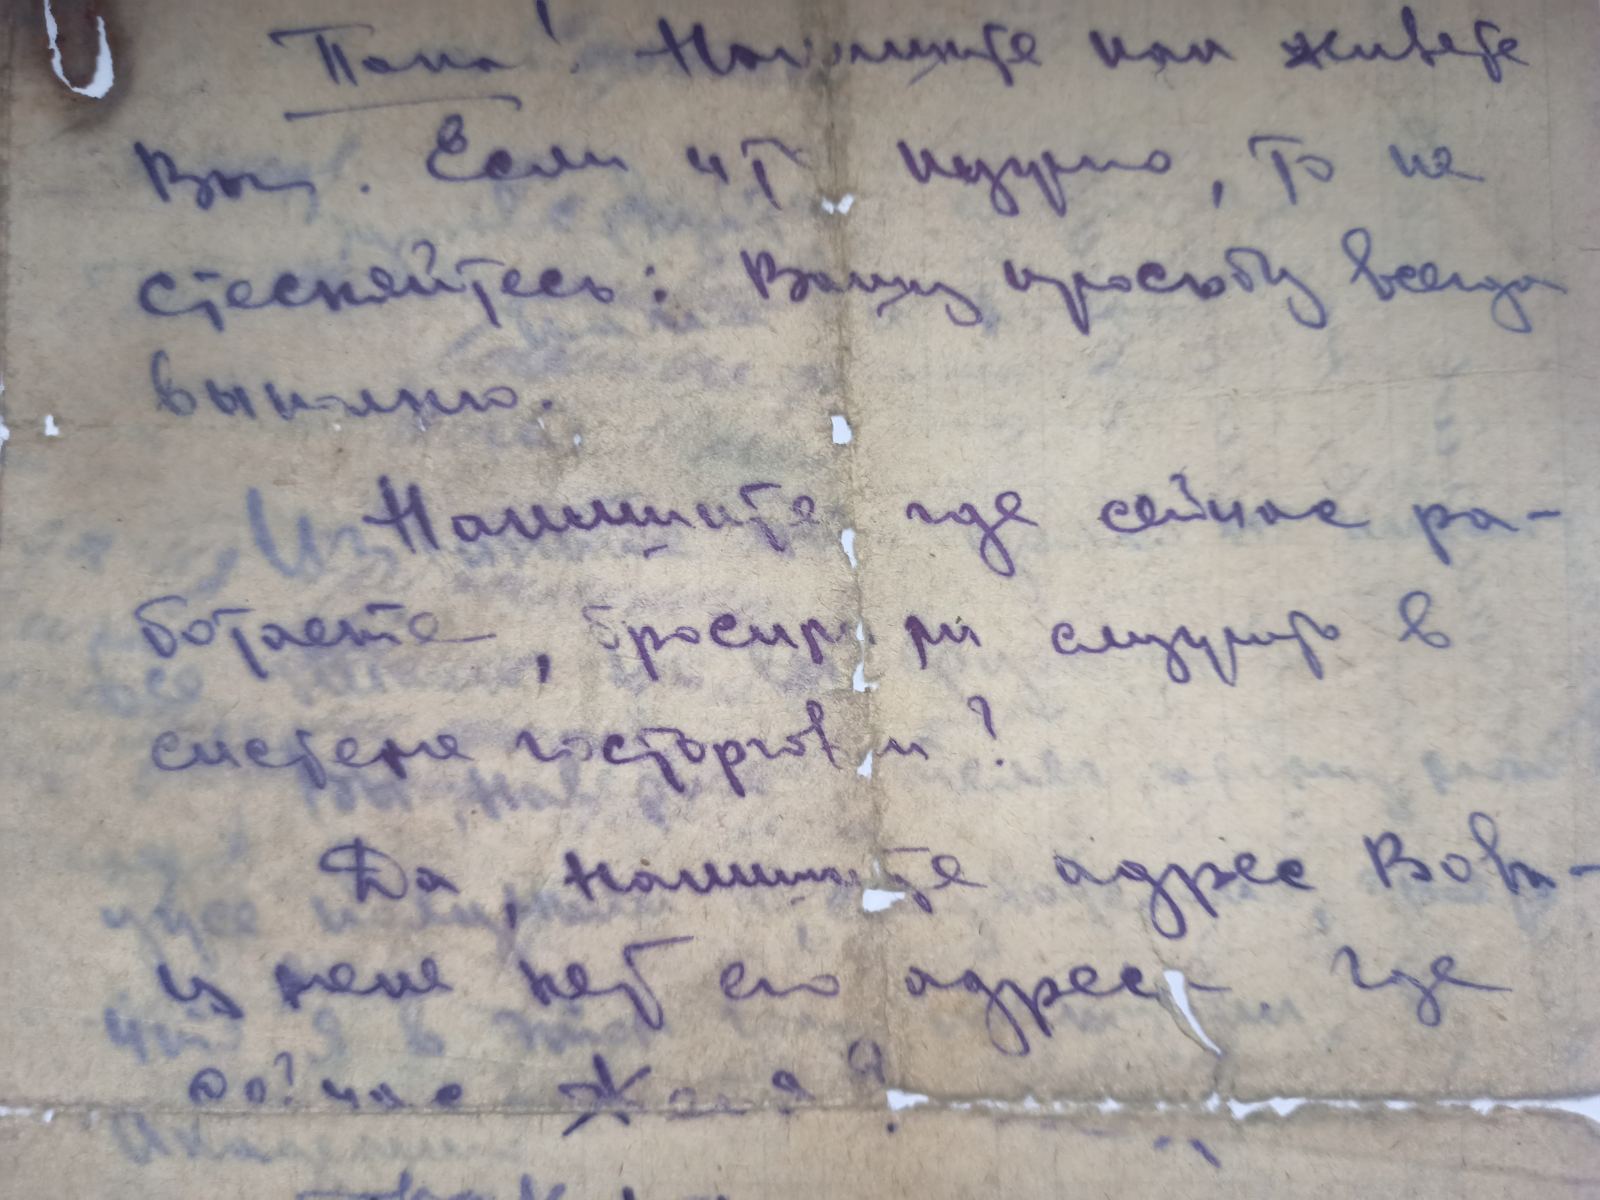 Папа! Напишите как живете
Вы. Если что нужно, то не
стесняйтесь: Вашу просьбу всегда
выполню.
Напишите где сейчас ра-
ботаете, бросили ли службу в
системе госторговли?
Да, напишите адрес Вовы-
у меня нет его адреса. Где
сейчас Женя?